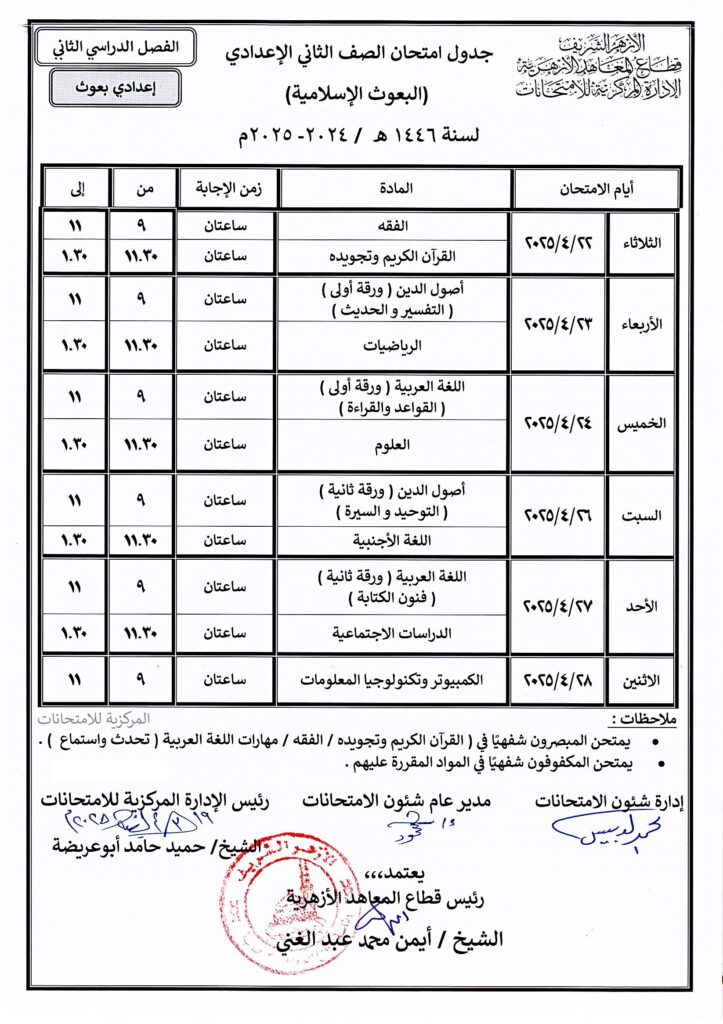 الأزهر الشريف
قطاع المعاهد الأزهرية
الإدارة المركزية للامتحانات
جدول امتحان الصف الثاني الإعدادي
(البعوث الإسلامية)
لسنة ١٤٤٦ هـ / ٢٠٢٤- ٢٠٢٥م
الفصل الدراسي الثاني
إعدادي بعوث
أيام الامتحان المادة زمن الإجابة من إلى
الثلاثاء ٢٠٢٥/٤/٢٢ الفقه ساعتان ٩ ١١
القرآن الكريم وتجويده ساعتان ١١.٣٠ ١.٣٠
الأربعاء ٢٠٢٥/٤/٢٣ أصول الدين ( ورقة أولى ) ساعتان ٩ ١١
( التفسير و الحديث )
الرياضيات ساعتان ١١.٣٠ ١.٣٠
الخميس ٢٠٢٥/٤/٢٤ اللغة العربية ( ورقة أولى ) ساعتان ٩ ١١
( القواعد والقراءة )
العلوم ساعتان ١١.٣٠ ١.٣٠
السبت ٢٠٢٥/٤/٢٦ أصول الدين ( ورقة ثانية ) ساعتان ٩ ١١
( التوحيد و السيرة )
اللغة الأجنبية ساعتان ١١.٣٠ ١.٣٠
الأحد ٢٠٢٥/٤/٢٧ اللغة العربية ( ورقة ثانية ) ساعتان ٩ ١١
( فنون الكتابة )
الدراسات الاجتماعية ساعتان ١١.٣٠ ١.٣٠
الاثنين ٢٠٢٥/٤/٢٨ الكمبيوتر وتكنولوجيا المعلومات ساعتان ٩ ١١
ملاحظات :
المركزية للامتحانات
• يمتحن المبصرون شفهيًا في ( القرآن الكريم وتجويده / الفقه / مهارات اللغة العربية ( تحدث واستماع ) .
• يمتحن المكفوفون شفهيًا في المواد المقررة عليهم .
إدارة شئون الامتحانات مدير عام شئون الامتحانات رئيس الإدارة المركزية للامتحانات
الشيخ/ حميد حامد أبوعريضة
يعتمد،،،
رئيس قطاع المعاهد الأزهرية
الشيخ / أيمن محمد عبد الغني
الأزهر الشريف